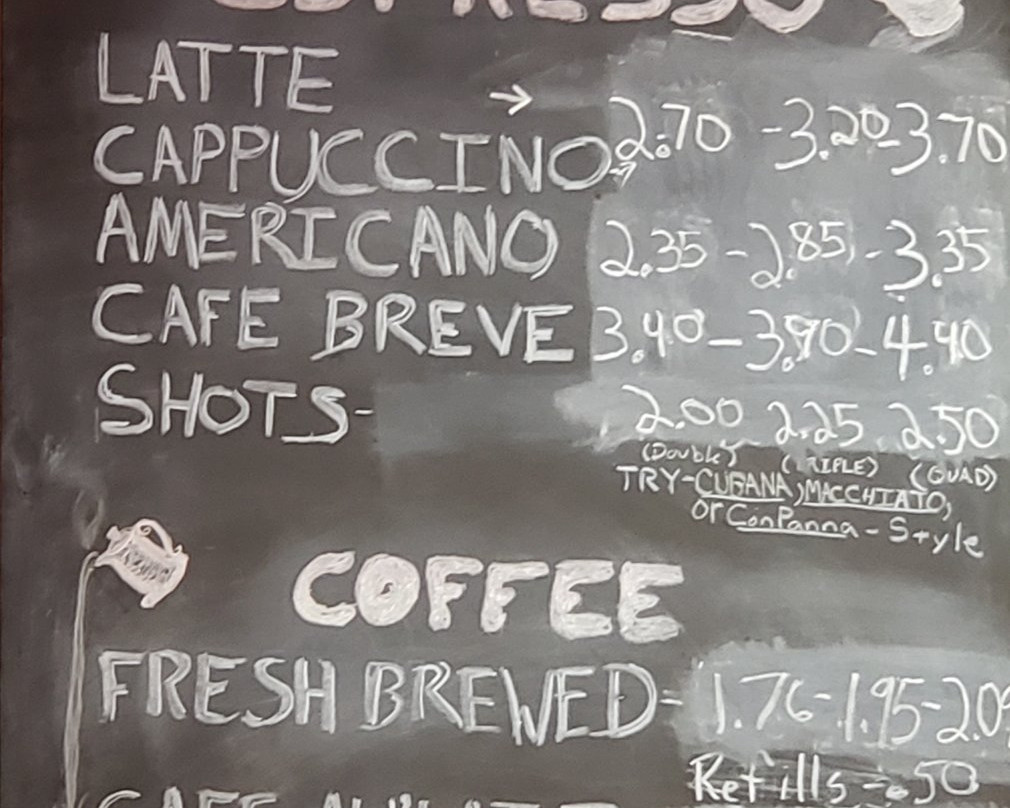 ESPRESSO
LATTE →
CAPPUCCINO → 2.70 - 3.20 - 3.70
AMERICANO 2.35 - 2.85 - 3.35
CAFE BREVE 3.40 - 3.90 - 4.40
SHOTS- 2.00 2.25 2.50
(Double) (TRIPLE) (QUAD)
TRY-CUBANA, MACCHIATO,
or ConPanna - Style
COFFEE
FRESH BREWED - 1.76 - 1.95 - 2.09
Refills - .50